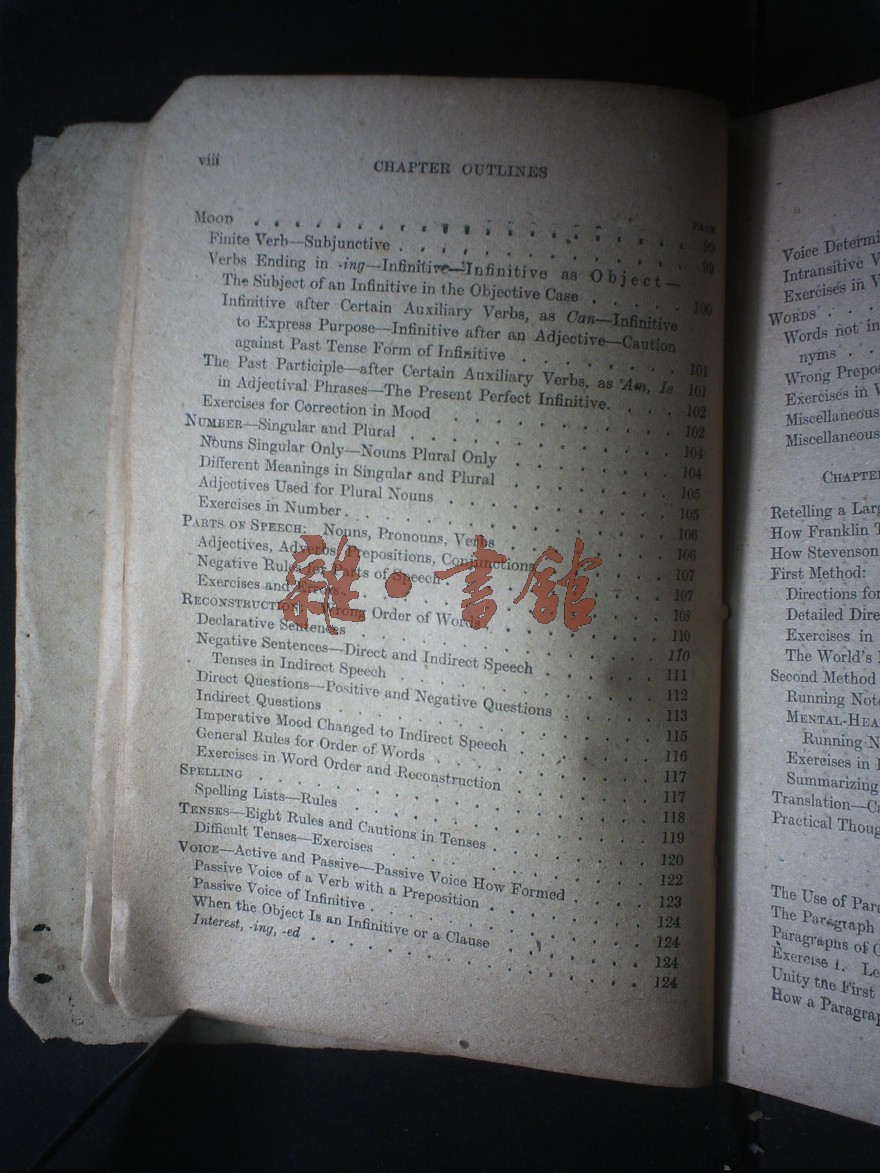 viii
CHAPTER OUTLINES
PAGE
Mood . . . . . . . . . . . . . . 99
Finite Verb—Subjunctive . . . . . . . . . . . 99
Verbs Ending in -ing—Infinitive—Infinitive as Object—
The Subject of an Infinitive in the Objective Case . . . . 100
Infinitive after Certain Auxiliary Verbs, as Can—Infinitive
to Express Purpose—Infinitive after an Adjective—Caution
against Past Tense Form of Infinitive . . . . . . . 101
The Past Participle—after Certain Auxiliary Verbs, as Am, Is 101
in Adjectival Phrases—The Present Perfect Infinitive. . . . 102
Exercises for Correction in Mood . . . . . . . . . 102
NUMBER—Singular and Plural . . . . . . . . . . 104
Nouns Singular Only—Nouns Plural Only . . . . . . . 104
Different Meanings in Singular and Plural . . . . . . . 105
Adjectives Used for Plural Nouns . . . . . . . . . 105
Exercises in Number. . . . . . . . . . . . . 106
PARTS OF SPEECH: Nouns, Pronouns, Verbs . . . . . . 106
Adjectives, Adverbs, Prepositions, Conjunctions . . . . . 107
Negative Rules for Parts of Speech . . . . . . . . . 107
Exercises and Errors. . . . . . . . . . . . . 108
RECONSTRUCTION: Wrong Order of Words . . . . . . . 110
Declarative Sentences . . . . . . . . . . . . 110
Negative Sentences—Direct and Indirect Speech . . . . . 111
Tenses in Indirect Speech . . . . . . . . . . . 112
Direct Questions—Positive and Negative Questions . . . . . 113
Indirect Questions . . . . . . . . . . . . . 115
Imperative Mood Changed to Indirect Speech . . . . . . 116
General Rules for Order of Words . . . . . . . . . 117
Exercises in Word Order and Reconstruction . . . . . . 117
SPELLING . . . . . . . . . . . . . . . 118
Spelling Lists—Rules . . . . . . . . . . . . 119
TENSES—Eight Rules and Cautions in Tenses . . . . . . 120
Difficult Tenses—Exercises . . . . . . . . . . . 122
VOICE—Active and Passive—Passive Voice How Formed . . . . 123
Passive Voice of a Verb with a Preposition . . . . . . . 124
Passive Voice of Infinitive . . . . . . . . . . . 124
When the Object Is an Infinitive or a Clause . . . . . . 124
Interest, -ing, -ed . . . . . . . . . . . . . 124
雜·書館
Voice
Intransitive
Exercises in
WORDS . . .
Words not in
nyms . .
Wrong
Exercises in
Miscellaneous
Miscellaneous
CHAPTER
Retelling a
How Franklin
How Stevenson
First Method:
Directions for
Detailed
Exercises in
The World's
Second Method
Running
Running
Exercises in
Summarizing
Translation—
Practical
The Use of
The Paragraph
Paragraphs of
Exercise 1.
Unity the First
How a